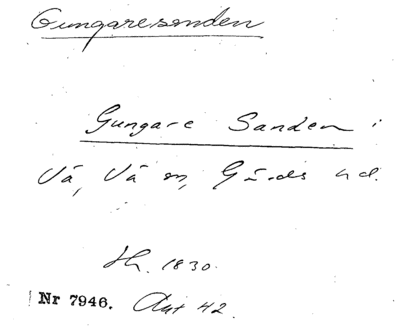 Gungaresanden
Gungare Sanden i
Vä, Vä sn, Gärds hd.
Lh. 1830.
Nr 7946. Akt 42.